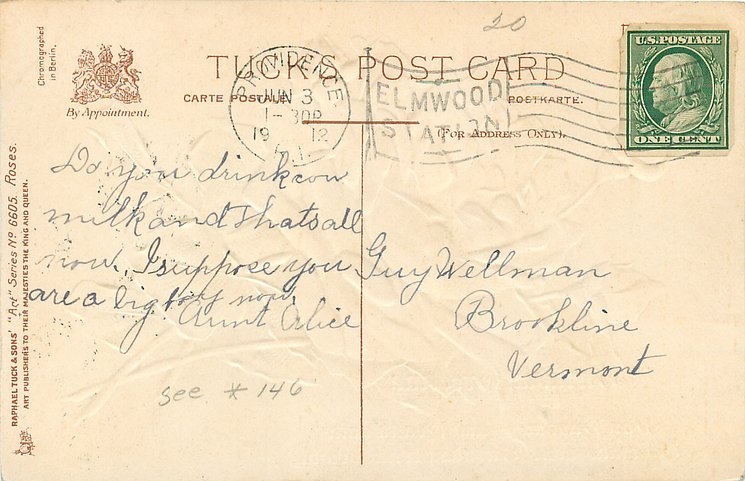 20
Chromographed
in Berlin.
By Appointment.
TUCK'S POST CARD
CARTE POSTALE
POSTKARTE.
(FOR ADDRESS ONLY).
PROVIDENCE
JUN 3
1-30P
19 12
ELMWOOD
STATION
U.S. POSTAGE
ONE CENT
RAPHAEL TUCK & SONS' "Art" Series No 6605. Roses.
ART PUBLISHERS TO THEIR MAJESTIES THE KING AND QUEEN.
Do you drink cow
milk and thats all
now. I suppose you
are a big boy now.
Aunt Alice
see # 146
Guy Wellman
Brookline
Vermont